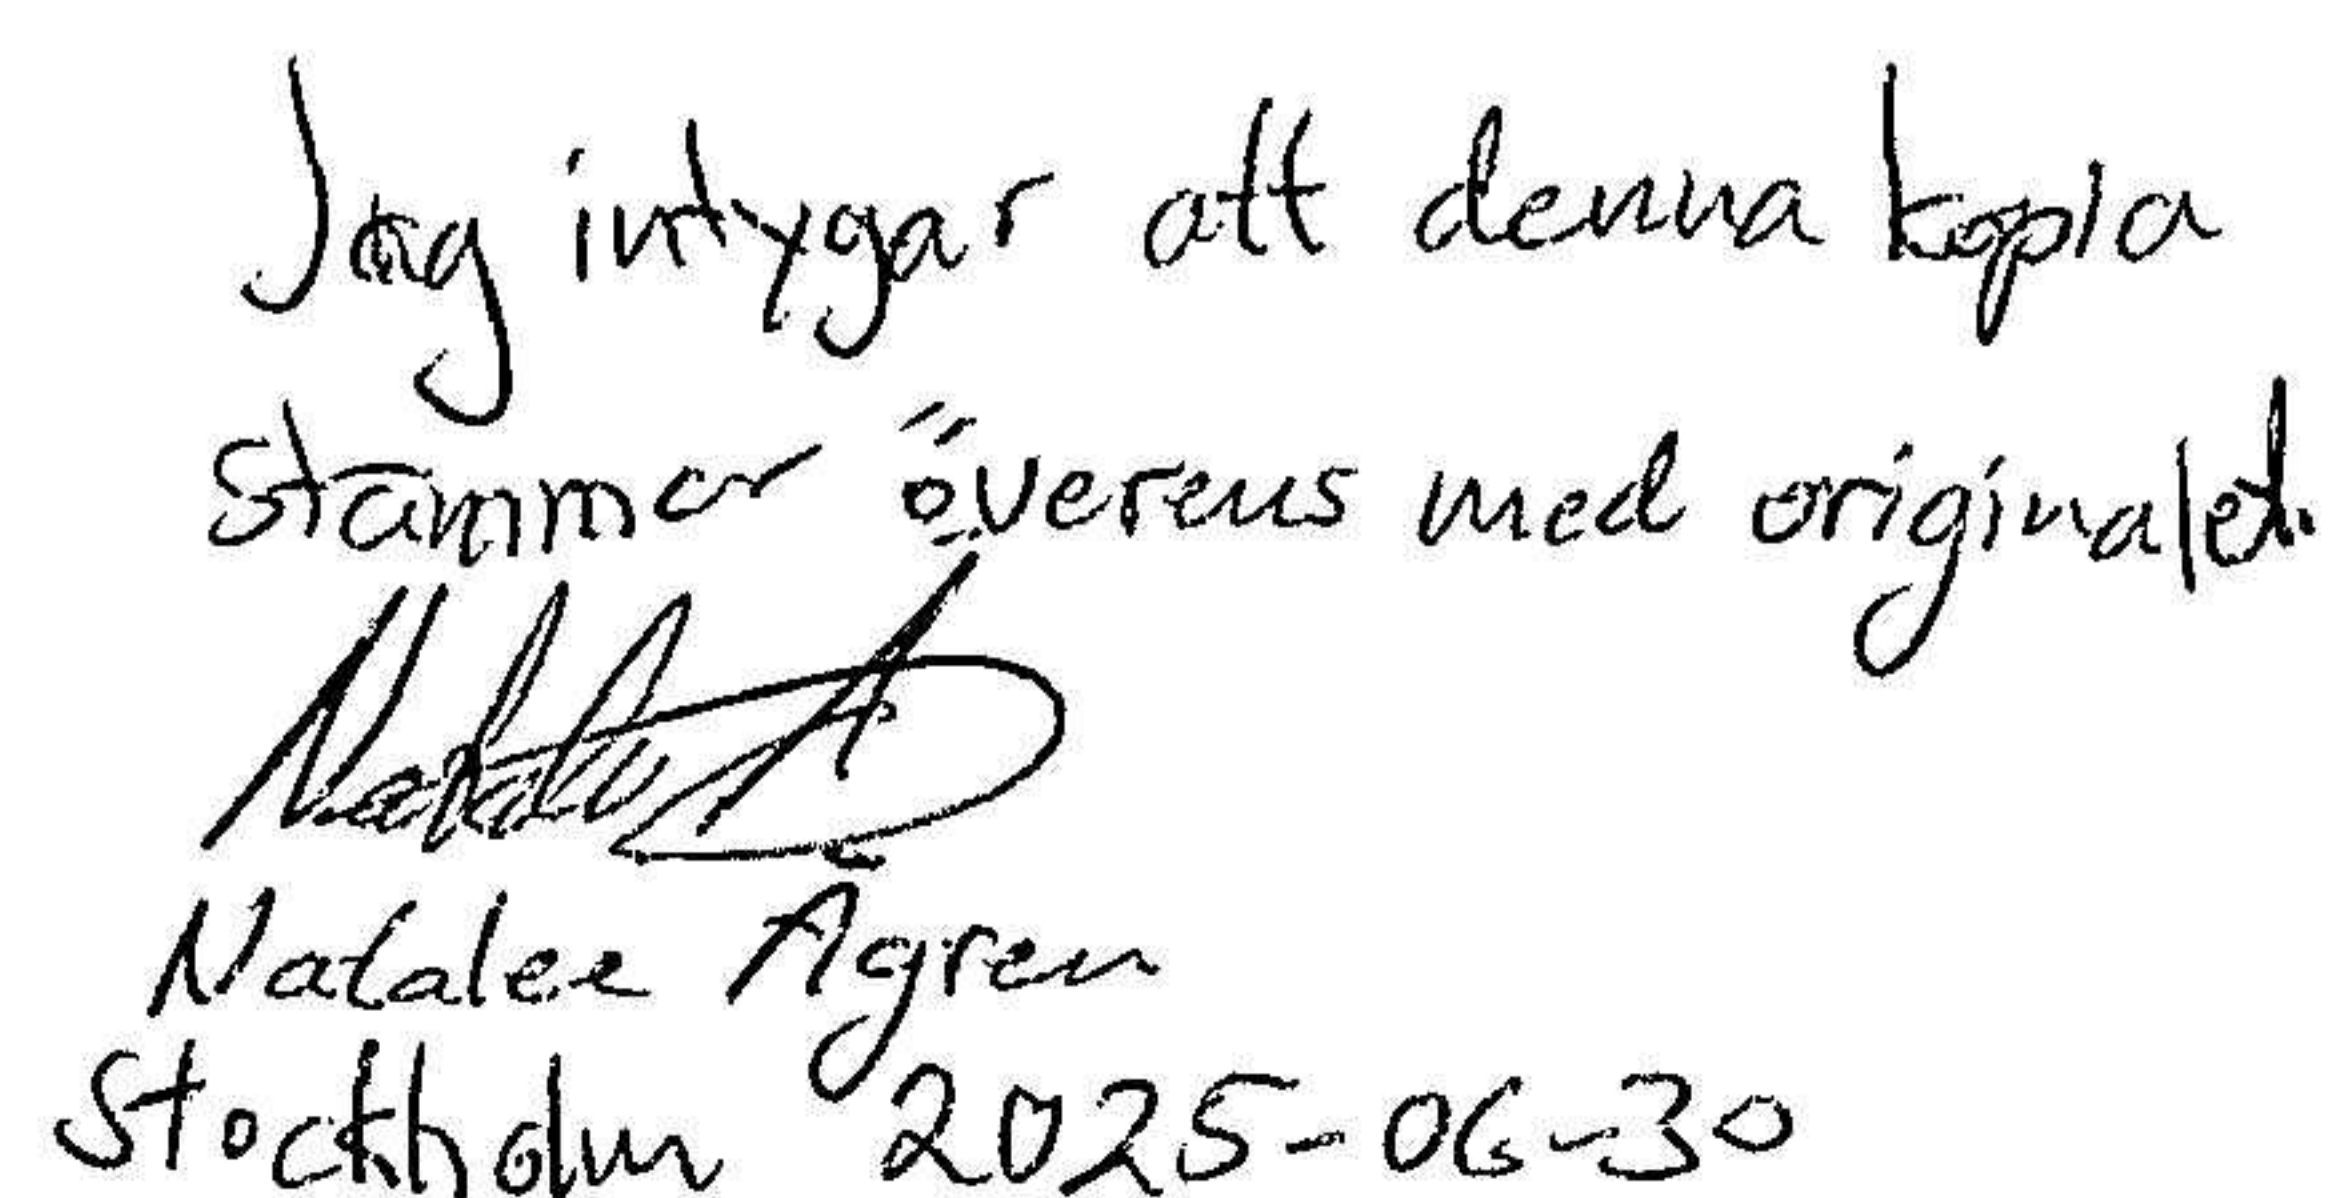 Jag intygar att denna kopia
stämmer överens med originalet.
Natalee Ågren
Stockholm 2025-06-30